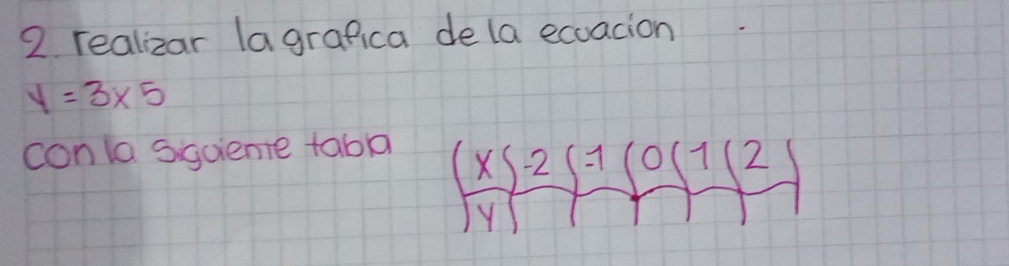 2. realizar la grafica de la ecuacion
y = 3x 5
con la siguiente tabla
x -2 -1 0 1 2
y